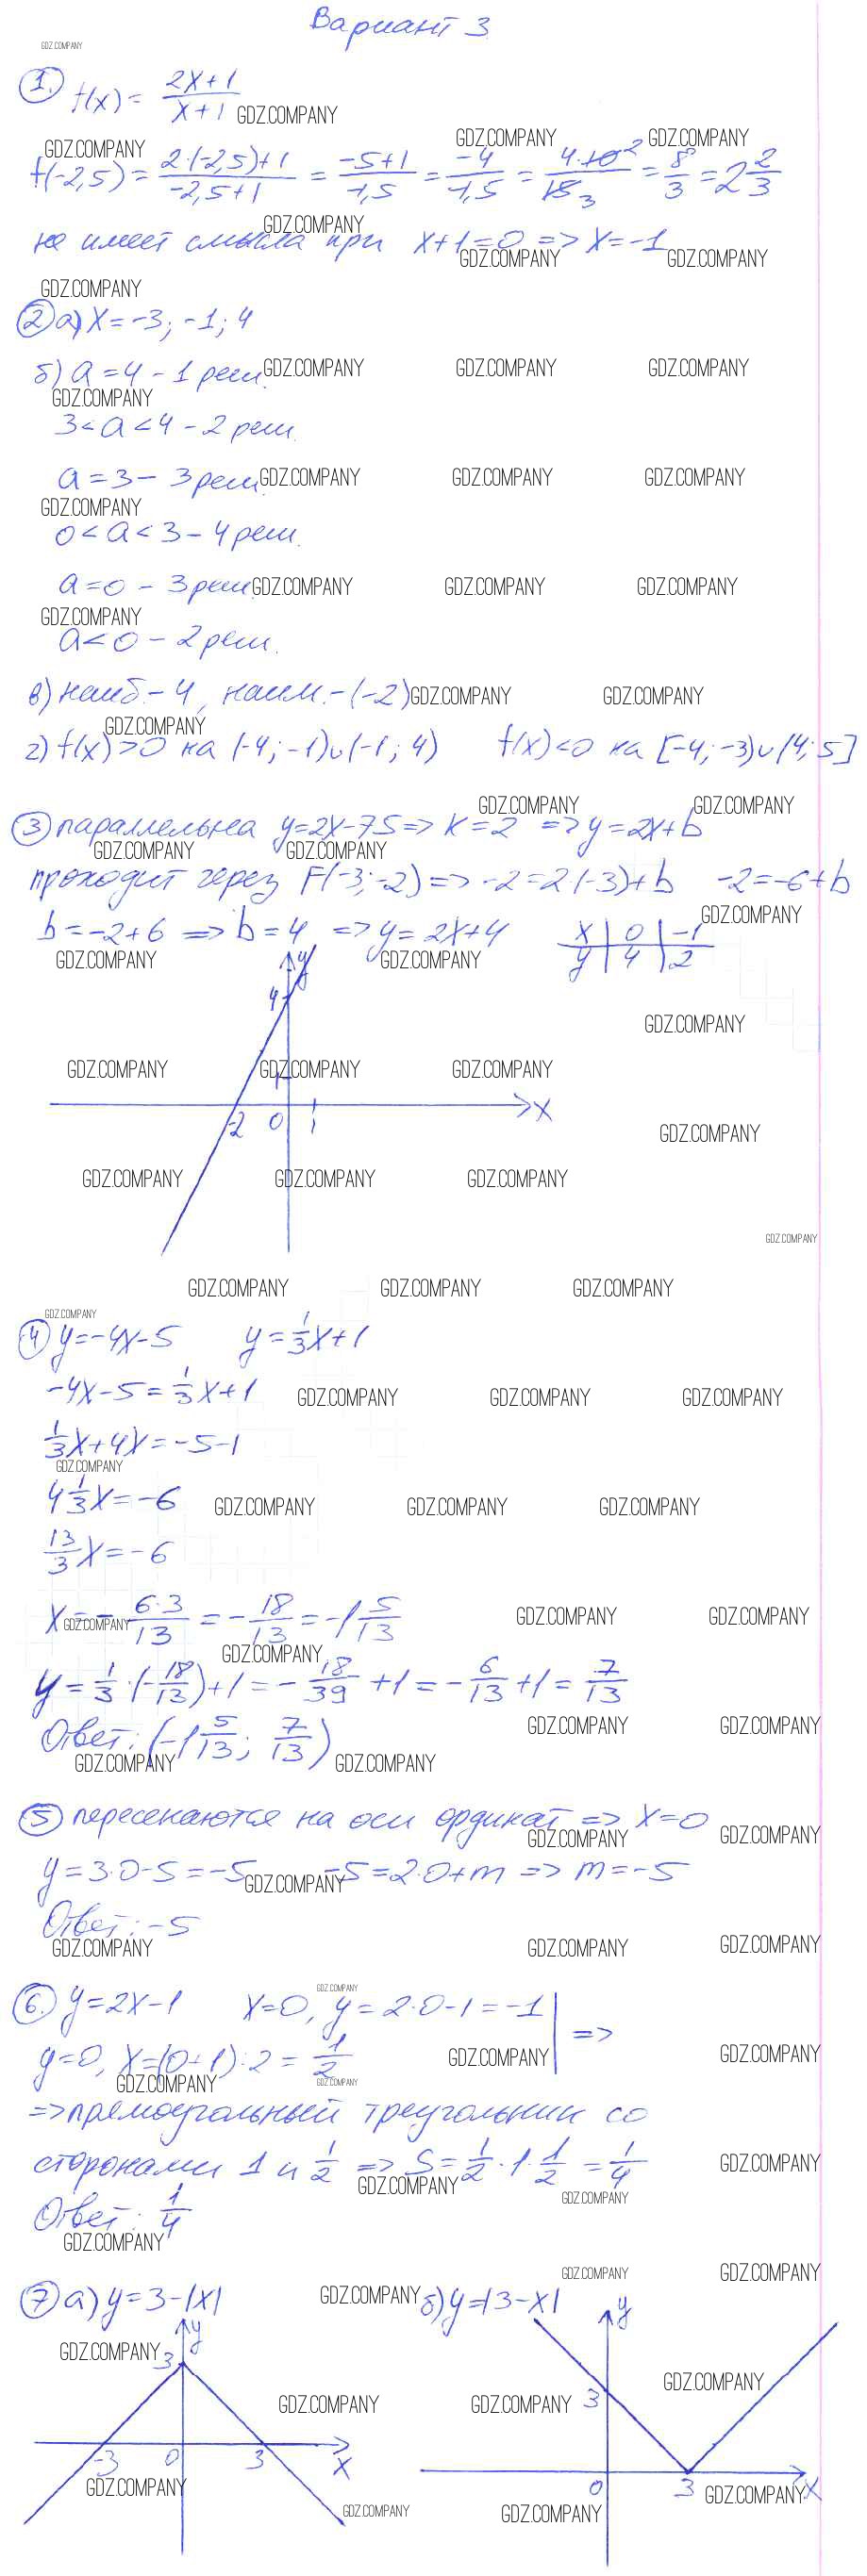 Вариант 3
GDZ.COMPANY
1. f(x) = (2x+1)/(x+1) GDZ.COMPANY
GDZ.COMPANY GDZ.COMPANY GDZ.COMPANY
f(-2,5) = (2·(-2,5)+1)/(-2,5+1) = (-5+1)/(-1,5) = (-4)/(-1,5) = (4·10 2)/(15 3) = 8/3 = 2 2/3
GDZ.COMPANY
не имеет смысла при x+1=0 => x=-1
GDZ.COMPANY GDZ.COMPANY
GDZ.COMPANY
2 а) x=-3; -1; 4
б) a=4 - 1 реш. GDZ.COMPANY GDZ.COMPANY GDZ.COMPANY
GDZ.COMPANY
3<a<4 - 2 реш.
a=3 - 3 реш. GDZ.COMPANY GDZ.COMPANY GDZ.COMPANY
GDZ.COMPANY
0<a<3 - 4 реш.
a=0 - 3 реш. GDZ.COMPANY GDZ.COMPANY GDZ.COMPANY
GDZ.COMPANY
a<0 - 2 реш.
в) наиб.- 4, наим.- (-2) GDZ.COMPANY GDZ.COMPANY
GDZ.COMPANY
г) f(x)>0 на (-4; -1)∪(-1; 4) f(x)<0 на [-4; -3)∪(4; 5]
GDZ.COMPANY GDZ.COMPANY
3 параллельна y=2x-75 => k=2 => y=2x+b
GDZ.COMPANY GDZ.COMPANY
проходит через F(-3;-2) => -2=2·(-3)+b -2=-6+b
GDZ.COMPANY
b=-2+6 => b=4 => y=2x+4 x | 0 | -1
y | 4 | 2
GDZ.COMPANY y GDZ.COMPANY
4
GDZ.COMPANY
GDZ.COMPANY GDZ.COMPANY GDZ.COMPANY
1
-2 0 1 x
GDZ.COMPANY
GDZ.COMPANY GDZ.COMPANY GDZ.COMPANY
GDZ.COMPANY
GDZ.COMPANY GDZ.COMPANY GDZ.COMPANY
GDZ.COMPANY
4 y=-4x-5 y=1/3x+1
-4x-5=1/3x+1 GDZ.COMPANY GDZ.COMPANY GDZ.COMPANY
1/3x+4x=-5-1
GDZ.COMPANY
4 1/3x=-6 GDZ.COMPANY GDZ.COMPANY GDZ.COMPANY
13/3x=-6
x=-(6·3)/13 = -18/13 = -1 5/13 GDZ.COMPANY GDZ.COMPANY GDZ.COMPANY
GDZ.COMPANY
y=1/3·(-18/13)+1=-18/39+1=-6/13+1=7/13
Ответ: (-1 5/13; 7/13) GDZ.COMPANY GDZ.COMPANY
GDZ.COMPANY GDZ.COMPANY
5 пересекаются на оси ординат => x=0
GDZ.COMPANY GDZ.COMPANY
y=3·0-5=-5 -5=2·0+m => m=-5
GDZ.COMPANY
Ответ: -5
GDZ.COMPANY GDZ.COMPANY GDZ.COMPANY
GDZ.COMPANY
6. y=2x-1 x=0, y=2·0-1=-1 | =>
y=0, x=(0+1):2=1/2 GDZ.COMPANY GDZ.COMPANY
GDZ.COMPANY GDZ.COMPANY
=> прямоугольный треугольник со
сторонами 1 и 1/2 => S=1/2·1·1/2=1/4 GDZ.COMPANY
GDZ.COMPANY
GDZ.COMPANY
Ответ: 1/4
GDZ.COMPANY
GDZ.COMPANY GDZ.COMPANY
7 а) y=3-|x| GDZ.COMPANY б) y=|3-x|
y y
GDZ.COMPANY 3 GDZ.COMPANY
GDZ.COMPANY GDZ.COMPANY 3
-3 0 3 x
GDZ.COMPANY 0 3 GDZ.COMPANY x
GDZ.COMPANY GDZ.COMPANY